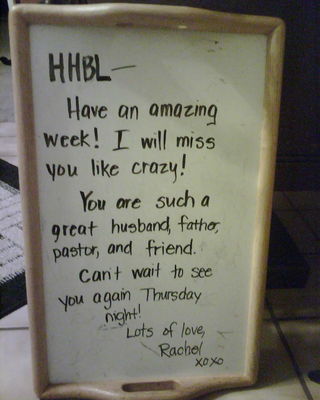 HHBL—
Have an amazing
week! I will miss
you like crazy!
You are such a
great husband, father,
pastor, and friend.
Can't wait to see
you again Thursday
night!
Lots of love,
Rachel
xoxo